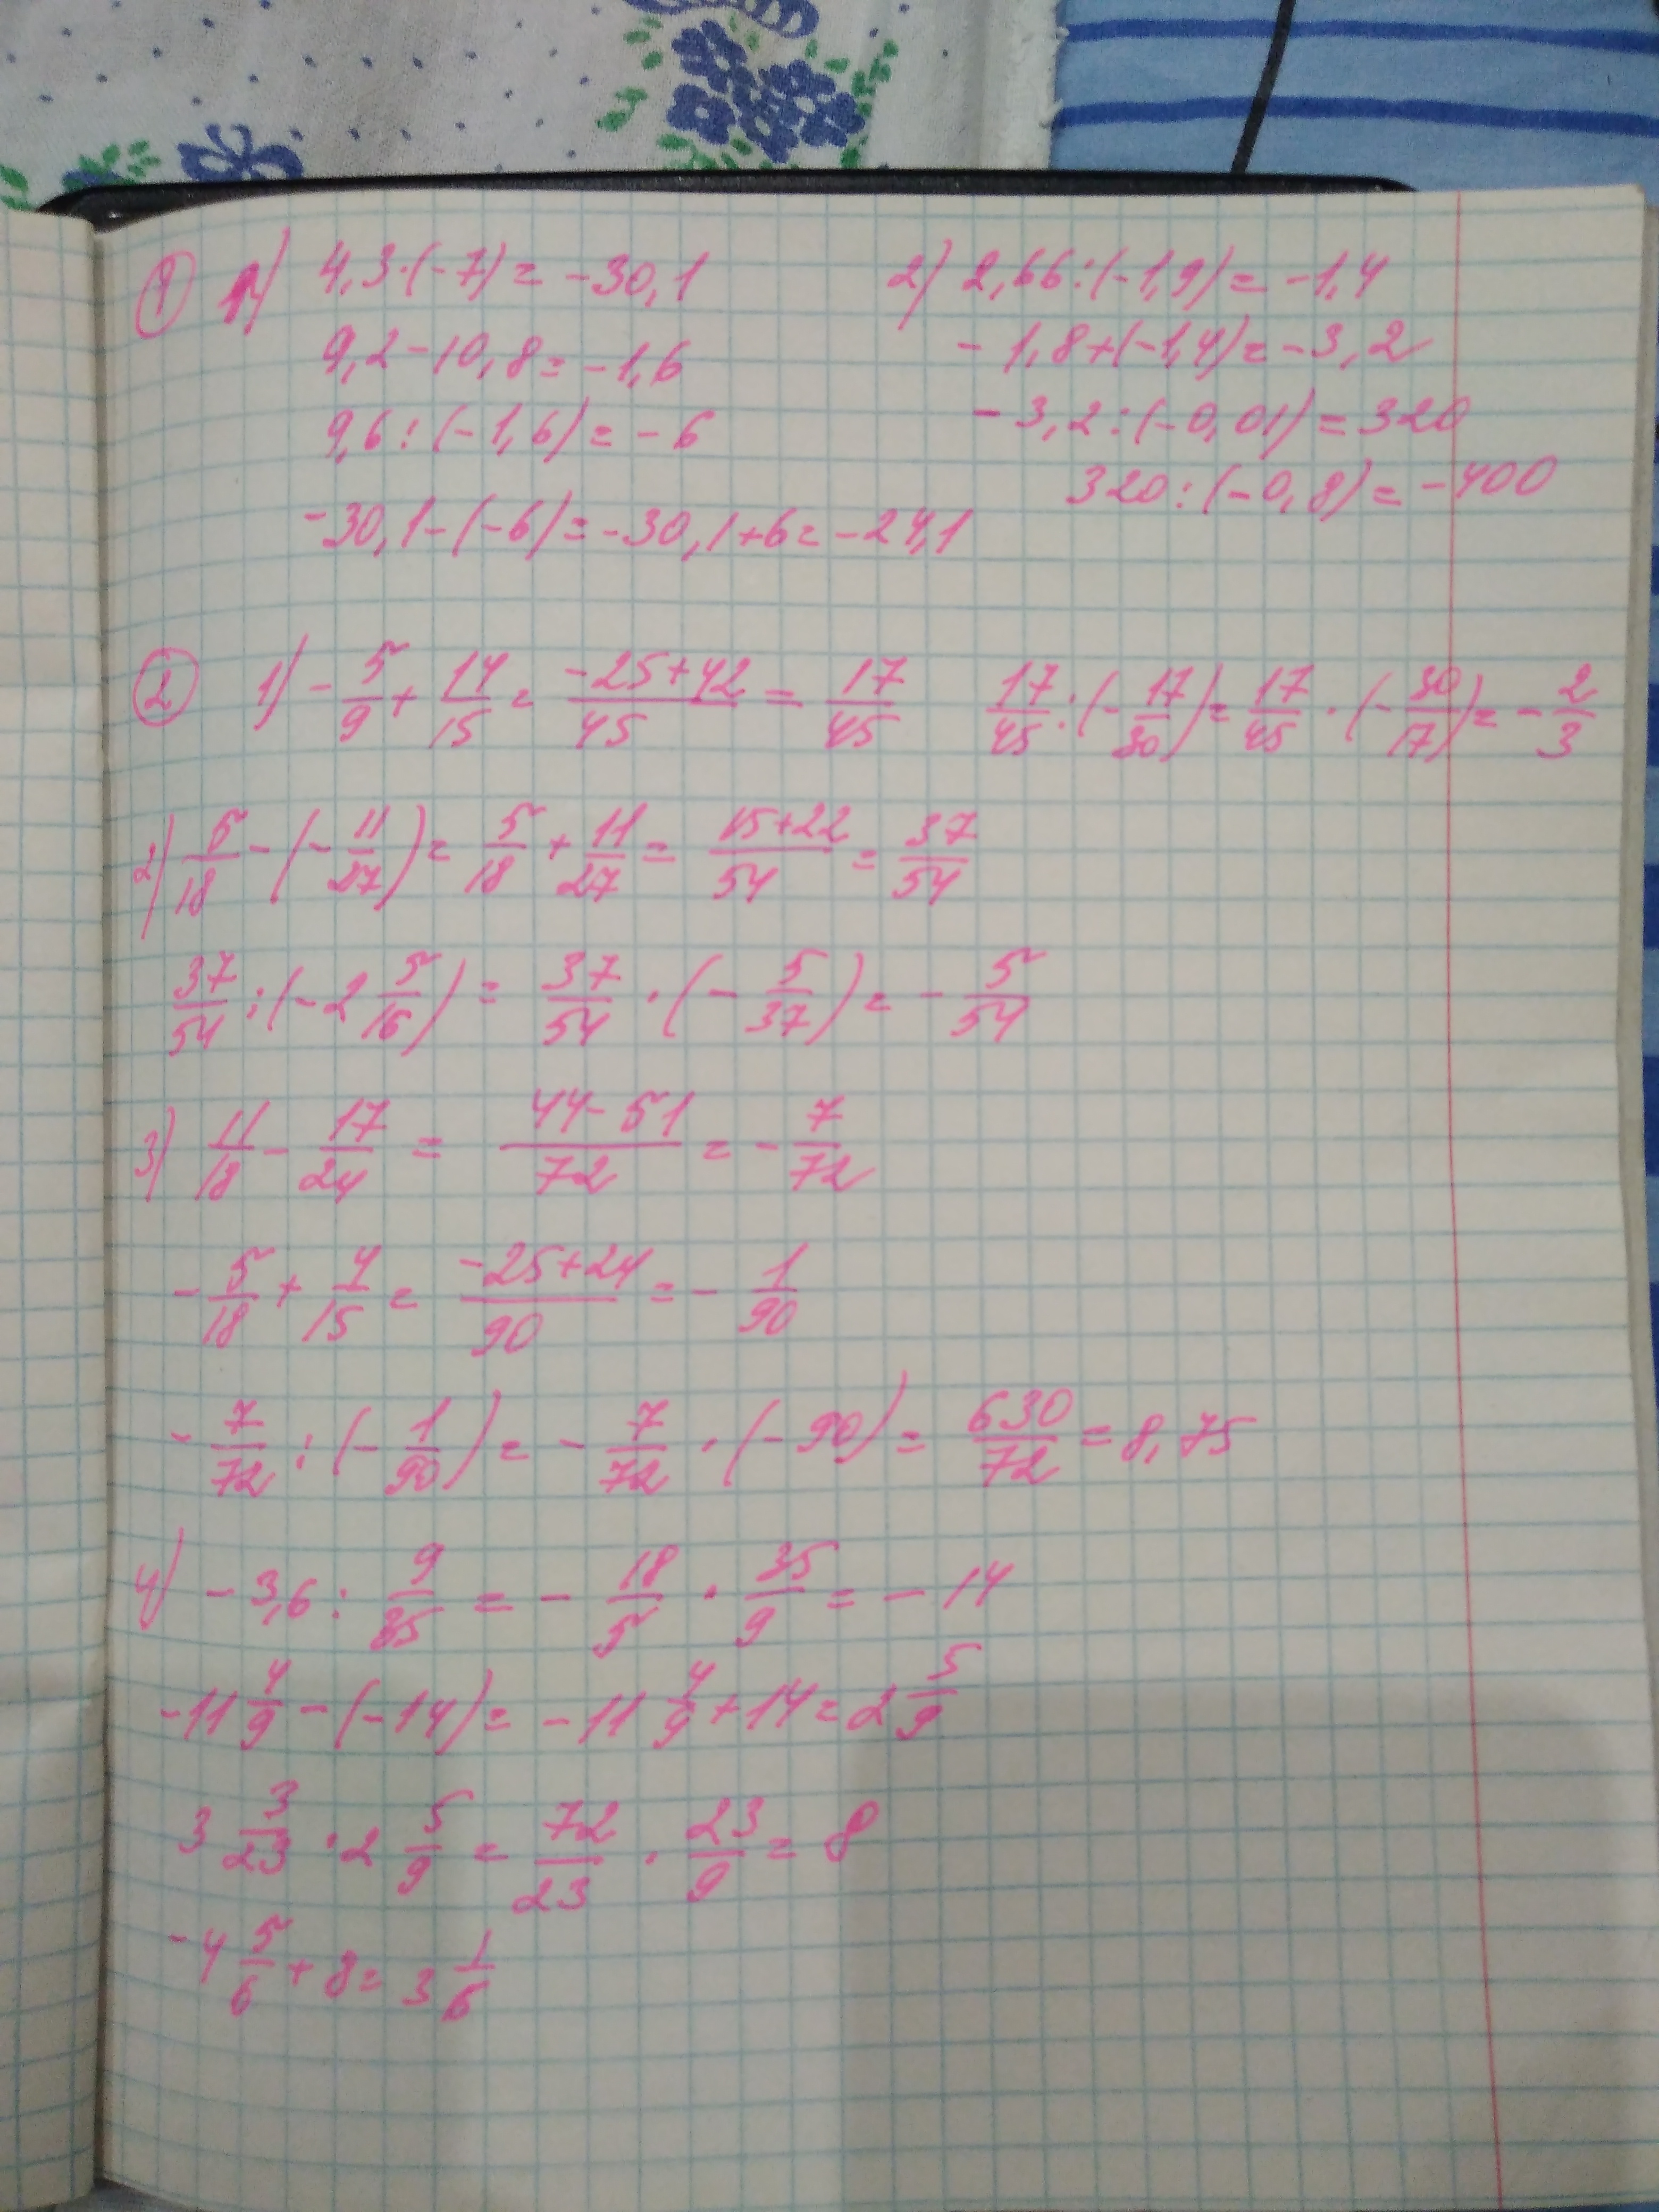 ① 1) 4,3·(-7)= -30,1
9,2-10,8= -1,6
9,6:(-1,6)= -6
-30,1-(-6)= -30,1+6= -24,1
2) 2,66:(-1,9)= -1,4
-1,8+(-1,4)= -3,2
-3,2:(-0,01)=320
320:(-0,8)= -400
② 1) -5/9 + 14/15 = (-25+42)/45 = 17/45   17/45 : (-17/30) = 17/45 · (-30/17) = -2/3
2) 5/18 - (-11/27) = 5/18 + 11/27 = (15+22)/54 = 37/54
37/54 : (-2 5/16) = 37/54 · (-5/37) = -5/54
3) 11/18 - 17/24 = (44-51)/72 = -7/72
-5/18 + 4/15 = (-25+24)/90 = -1/90
-7/72 : (-1/90) = -7/72 · (-90) = 630/72 = 8,75
4) -3,6 : 9/35 = -18/5 · 35/9 = -14
-11 4/9 - (-14) = -11 4/9 + 14 = 2 5/9
3 3/23 · 2 5/9 = 72/23 · 23/9 = 8
-4 5/6 + 8 = 3 1/6